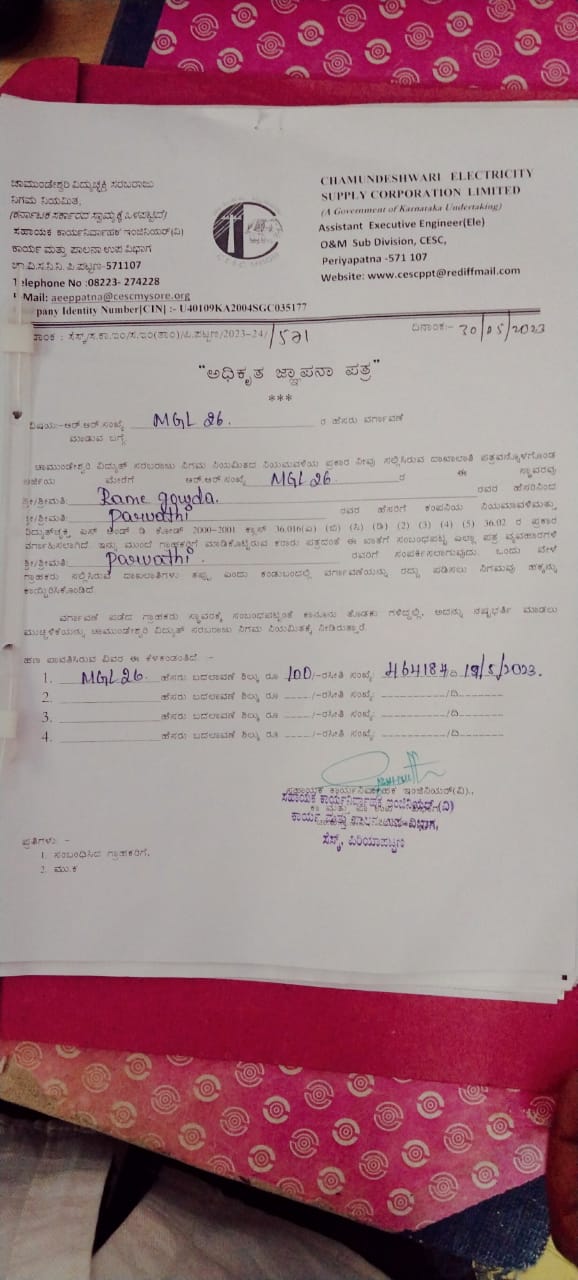 ಚಾಮುಂಡೇಶ್ವರಿ ವಿದ್ಯುಚ್ಛಕ್ತಿ ಸರಬರಾಜು
ನಿಗಮ ನಿಯಮಿತ,
(ಕರ್ನಾಟಕ ಸರ್ಕಾರದ ಸ್ವಾಮ್ಯಕ್ಕೆ ಒಳಪಟ್ಟಿದೆ)
ಸಹಾಯಕ ಕಾರ್ಯನಿರ್ವಾಹಕ ಇಂಜಿನಿಯರ್(ವಿ)
ಕಾರ್ಯ ಮತ್ತು ಪಾಲನಾ ಉಪ ವಿಭಾಗ
ಚಾ.ವಿ.ಸ.ನಿ.ನಿ. ಪಿ.ಪಟ್ಟಣ-571107
Telephone No :08223- 274228
Mail: aeeppatna@cescmysore.org
pany Identity Number[CIN] :- U40109KA2004SGC035177
CHAMUNDESHWARI ELECTRICITY
SUPPLY CORPORATION LIMITED
(A Government of Karnataka Undertaking)
Assistant Executive Engineer(Ele)
O&M Sub Division, CESC,
Periyapatna -571 107
Website: www.cescppt@rediffmail.com
ಸೆಸ್ಕ್/ಸ.ಕಾ.ಇಂ/ಸ.ಇಂ(ತಾಂ)/ಪಿ.ಪಟ್ಟಣ/2023-24/521 ದಿನಾಂಕ:- 30/05/2023
"ಅಧಿಕೃತ ಜ್ಞಾಪನಾ ಪತ್ರ"
***
ವಿಷಯ:-ಆರ್.ಆರ್.ಸಂಖ್ಯೆ MGL 26. ರ ಹೆಸರು ವರ್ಗಾವಣೆ
ಮಾಡುವ ಬಗ್ಗೆ
ಚಾಮುಂಡೇಶ್ವರಿ ವಿದ್ಯುತ್ ಸರಬರಾಜು ನಿಗಮ ನಿಯಮಿತದ ನಿಯಮವಳಿಯ ಪ್ರಕಾರ ನೀವು ಸಲ್ಲಿಸಿರುವ ದಾಖಲಾತಿ ಪತ್ರವನ್ನೊಳಗೊಂಡ
ಅರ್ಜಿಯ ಮೇರೆಗೆ ಆರ್.ಆರ್.ಸಂಖ್ಯೆ MGL 26 ರ ಈ ಸ್ಥಾವರವು
ಶ್ರೀ/ಶ್ರೀಮತಿ: Rame gowda. ರವರ ಹೆಸರಿನಿಂದ
ಶ್ರೀ/ಶ್ರೀಮತಿ: Parvathi ರವರ ಹೆಸರಿಗೆ ಕಂಪನಿಯ ನಿಯಮಾವಳಿಮತ್ತು
ವಿದ್ಯುಚ್ಛಕ್ತಿ ಎಸ್ ಅಂಡ್ ಡಿ ಕೋಡ್ 2000-2001 ಕ್ಲಾಸ್ 36.016(ಎ) (ಬಿ) (ಸಿ) (ಡಿ) (2) (3) (4) (5) 36.02 ರ ಪ್ರಕಾರ
ವರ್ಗಾಹಿಸಲಾಗಿದೆ. ಇನ್ನು ಮುಂದೆ ಈ ಗ್ರಾಹಕರಿಗೆ ಮಾಡಿಕೊಟ್ಟಿರುವ ಕರಾರು ಪತ್ರದಂತೆ ಈ ಖಾತೆಗೆ ಸಂಬಂಧಪಟ್ಟ ಎಲ್ಲಾ ಪತ್ರ ವ್ಯವಹಾರಗಳ
ಶ್ರೀ/ಶ್ರೀಮತಿ: Parvathi. ರವರಿಗೆ ಸಂಪರ್ಕಿಸಲಾಗುವುದು. ಒಂದು ವೇಳೆ
ಗ್ರಾಹಕರು ಸಲ್ಲಿಸಿರುವ ದಾಖಲಾತಿಗಳು ತಪ್ಪು ಎಂದು ಕಂಡುಬಂದಲ್ಲಿ ವರ್ಗಾವಣೆಯನ್ನು ರದ್ದು ಪಡಿಸಲು ನಿಗಮವು ಹಕ್ಕನ್ನು
ಕಾಯ್ದಿರಿಸಿಕೊಂಡಿದೆ
ವರ್ಗಾವಣೆ ಪಡೆದ ಗ್ರಾಹಕರು ಸ್ಥಾವರಕ್ಕೆ ಸಂಬಂಧಪಟ್ಟಂತೆ ಕಾನೂನು ತೊಡಕು ಗಳಿದ್ದಲ್ಲಿ, ಅದನ್ನು ನಷ್ಟಭರ್ತಿ ಮಾಡಲು
ಮುಚ್ಚಳಿಕೆಯನ್ನು ಚಾಮುಂಡೇಶ್ವರಿ ವಿದ್ಯುತ್ ಸರಬರಾಜು ನಿಗಮ ನಿಯಮಿತಕ್ಕೆ ನೀಡಿರುತ್ತಾರೆ
ಹಣ ಪಾವತಿಸಿರುವ ವಿವರ ಈ ಕೆಳಕಂಡಂತಿದೆ. :-
1. MGL 26. ಹೆಸರು ಬದಲಾವಣೆ ಶಿಲ್ಕು ರೂ 100/-ರಸೀತಿ ಸಂಖ್ಯೆ: 19/5/2023.
2. ಹೆಸರು ಬದಲಾವಣೆ ಶಿಲ್ಕು ರೂ /-ರಸೀತಿ ಸಂಖ್ಯೆ: /ದಿ
3. ಹೆಸರು ಬದಲಾವಣೆ ಶಿಲ್ಕು ರೂ /-ರಸೀತಿ ಸಂಖ್ಯೆ: /ದಿ
4. ಹೆಸರು ಬದಲಾವಣೆ ಶಿಲ್ಕು ರೂ /-ರಸೀತಿ ಸಂಖ್ಯೆ: /ದಿ
ಸಹಾಯಕ ಕಾರ್ಯನಿರ್ವಾಹಕ ಇಂಜಿನಿಯರ್(ವಿ).,
ಸಹಾಯಕ ಕಾರ್ಯನಿರ್ವಾಹಕ ಇಂಜಿನಿಯರ್-(ವಿ)
ಕಾರ್ಯ ಮತ್ತು ಪಾಲನಉಪ-ವಿಭಾಗ,
ಸೆಸ್ಕ್, ಪಿರಿಯಾಪಟ್ಟಣ
ಪ್ರತಿಗಳು: -
1. ಸಂಬಂಧಿಸಿದ ಗ್ರಾಹಕರಿಗೆ.
2. ಮು.ಕ